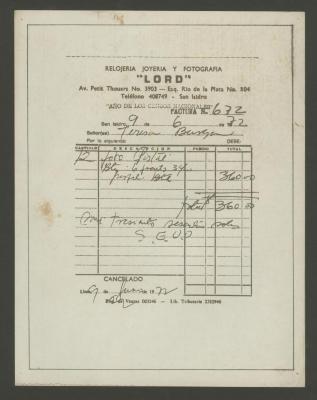 RELOJERIA JOYERIA Y FOTOGRAFIA
"LORD"
Av. Petit Thouars No. 3903 — Esq. Río de la Plata No. 304
Teléfono 408749 - San Isidro
"AÑO DE LOS CENSOS NACIONALES"
FACTURA No. 672
San Isidro, 9 de 6 de 1972
Señor(es) Teresa
Por lo siguiente: DEBE:
CANTIDAD DESCRIPCION PUNIDO TOTAL
12 foto Postal
360.00
total 360.00
Son trescientos sesenta soles
S.E.U.O
CANCELADO
Lima, 9 de Junio 1972
Lib. Tributaria 2352946